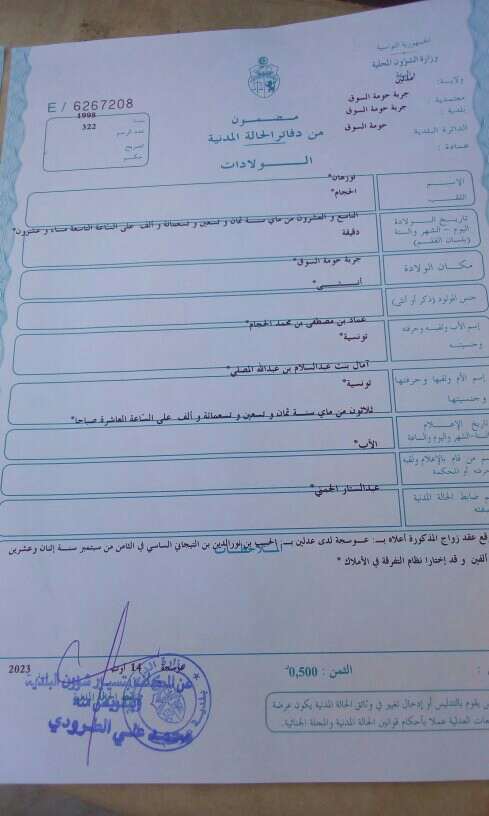 الجمهورية التونسية
وزارة الشؤون المحلية
ولاية: مدنين
معتمدية: جربة حومة السوق
بلدية: جربة حومة السوق
الدائرة البلدية: حومة السوق
عمادة:
E / 6267208
سنة 1998
عدد الرسم 322
مضمون
من دفاتر الحالة المدنية
الولادات
الاسم نورهان"
اللقب الحجام"
تاريخ الولادة
اليوم - الشهر والسنة
(بلسان القلم)
التاسع و العشرون من ماي سنة ثمان و تسعين و تسعمائة و ألف على الساعة التاسعة مساء و عشرون"
دقيقة
مكان الولادة جربة حومة السوق"
جنس المولود (ذكر أو أنثى) أنثى"
إسم الأب ولقبه وحرفته عماد بن مصطفى بن محمد الحجام"
وجنسيته تونسية"
إسم الأم ولقبها وحرفتها آمال بنت عبدالسلام بن عبدالله المصلي"
وجنسيتها تونسية"
تاريخ الإعلام ثلاثون من ماي سنة ثمان و تسعين و تسعمائة و ألف على الساعة العاشرة صباحا"
السنة-الشهر واليوم والساعة
إسم من قام بالإعلام ولقبه الأب"
وحرفته أو المحكمة
إسم ضابط الحالة المدنية عبدالستار"
وصفته
الملاحظات
وقع عقد زواج المذكورة أعلاه بـ: عوسجة لدى عدلين بـ الحبيب بن نورالدين بن التيجاني الساسي في الثامن من سبتمبر سنة إثنان وعشرين
ألفين و قد إختارا نظام التفرقة في الأملاك "
عوسجة 14 أوت 2023
الثمن : 0,500 د
ضابط الحالة المدنية
شؤون البلدية
محمد علي الطرودي
من يقوم بالتدليس أو إدخال تغيير في وثائق الحالة المدنية يكون عرضة
للتتبعات العدلية عملا بأحكام قوانين الحالة المدنية والمجلة الجنائية.